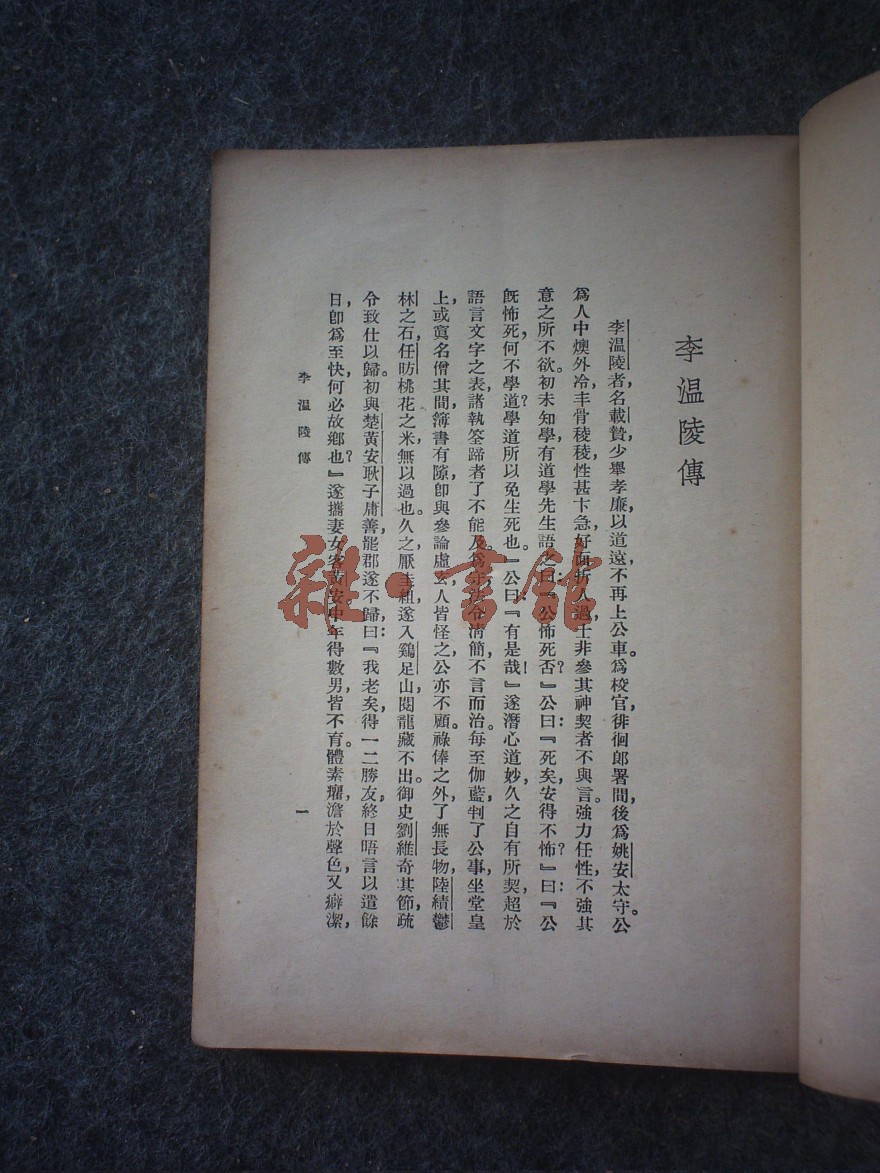 李溫陵傳
李溫陵者，名載贄，少舉孝廉，以道遠，不再上公車。爲校官，徘徊郎署間，後爲姚安太守。公
爲人中燠外冷，丰骨稜稜，性甚卞急，好面折人過，士非參其神契者不與言。強力任性，不強其
意之所不欲。初未知學，有道學先生語之曰：『公怖死否？』公曰：『死矣，安得不怖？』曰：『公
旣怖死，何不學道？學道所以免生死也。』公曰：『有是哉！』遂潛心道妙，久之自有所契，超於
語言文字之表，諸執筌蹄者了不能及。爲守，法令淸簡，不言而治。每至伽藍，判了公事，坐堂皇
上，或寘名僧其間，簿書有隙，卽與參論虛玄，人皆怪之，公亦不顧。祿俸之外，了無長物，陸績鬱
林之石，任昉桃花之米，無以過也。久之，厭圭組，遂入鷄足山，閱龍藏不出。御史劉維奇其節，疏
令致仕以歸。初與楚黃安耿子庸善，罷郡遂不歸，曰：『我老矣，得一二勝友，終日晤言以遣餘
日，卽爲至快，何必故鄕也？』遂攜妻女客黃安。中年得數男，皆不育。體素癯，澹於聲色，又癖潔，
李溫陵傳
一
雜·書館